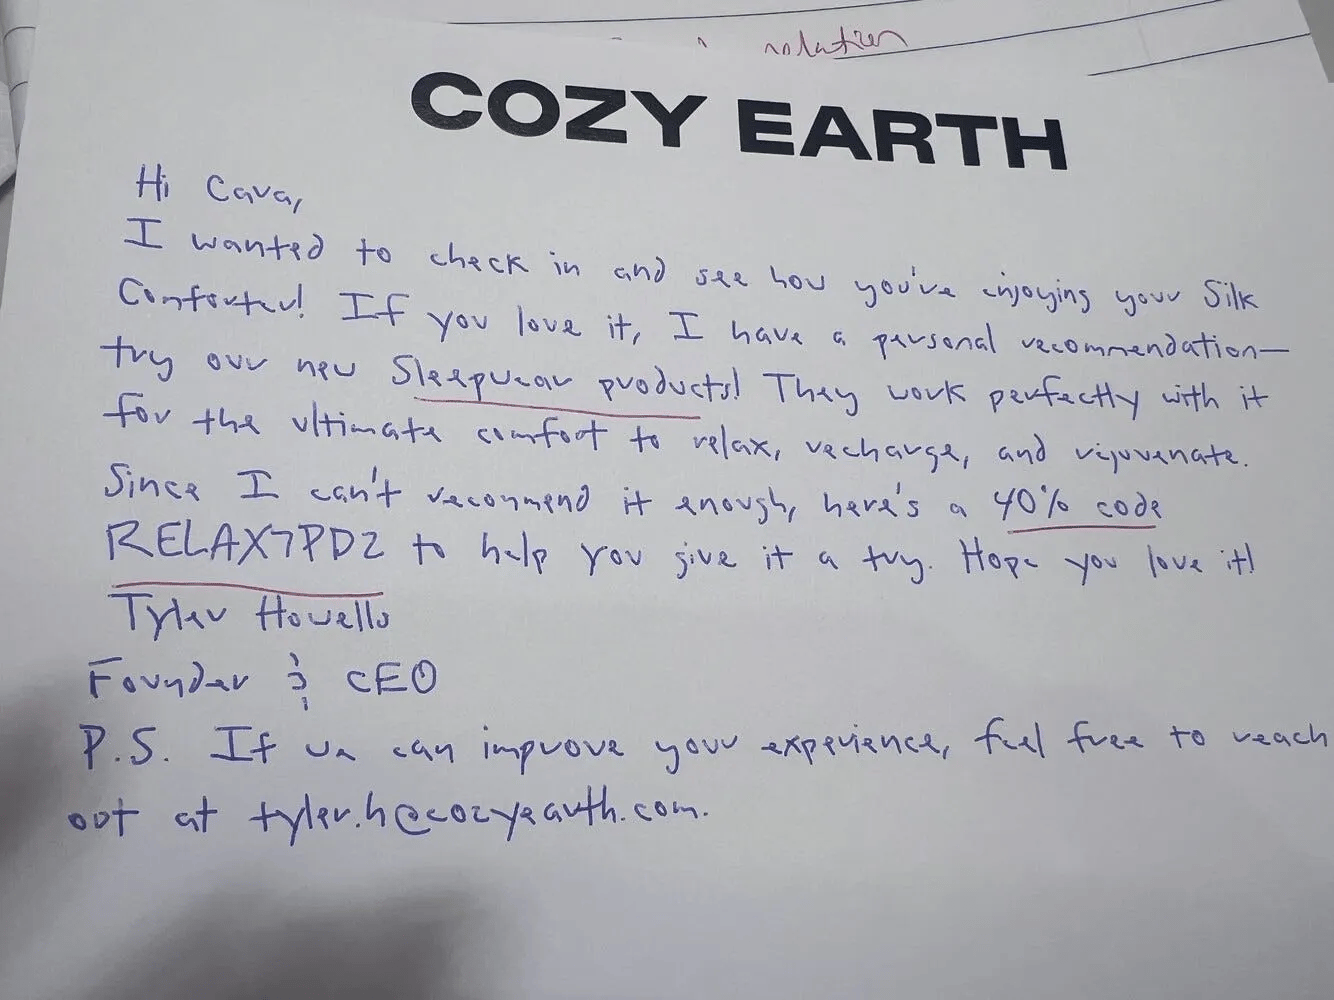 notation
COZY EARTH
Hi Cava,
I wanted to check in and see how you've enjoying your Silk
Comforter! If you love it, I have a personal recommendation—
try our new Sleepwear products! They work perfectly with it
for the ultimate comfort to relax, recharge, and rejuvenate.
Since I can't recommend it enough, here's a 40% code
RELAX7PD2 to help you give it a try. Hope you love it!
Tyler Howells
Founder & CEO
P.S. If we can improve your experience, feel free to reach
out at tyler.h@cozyearth.com.